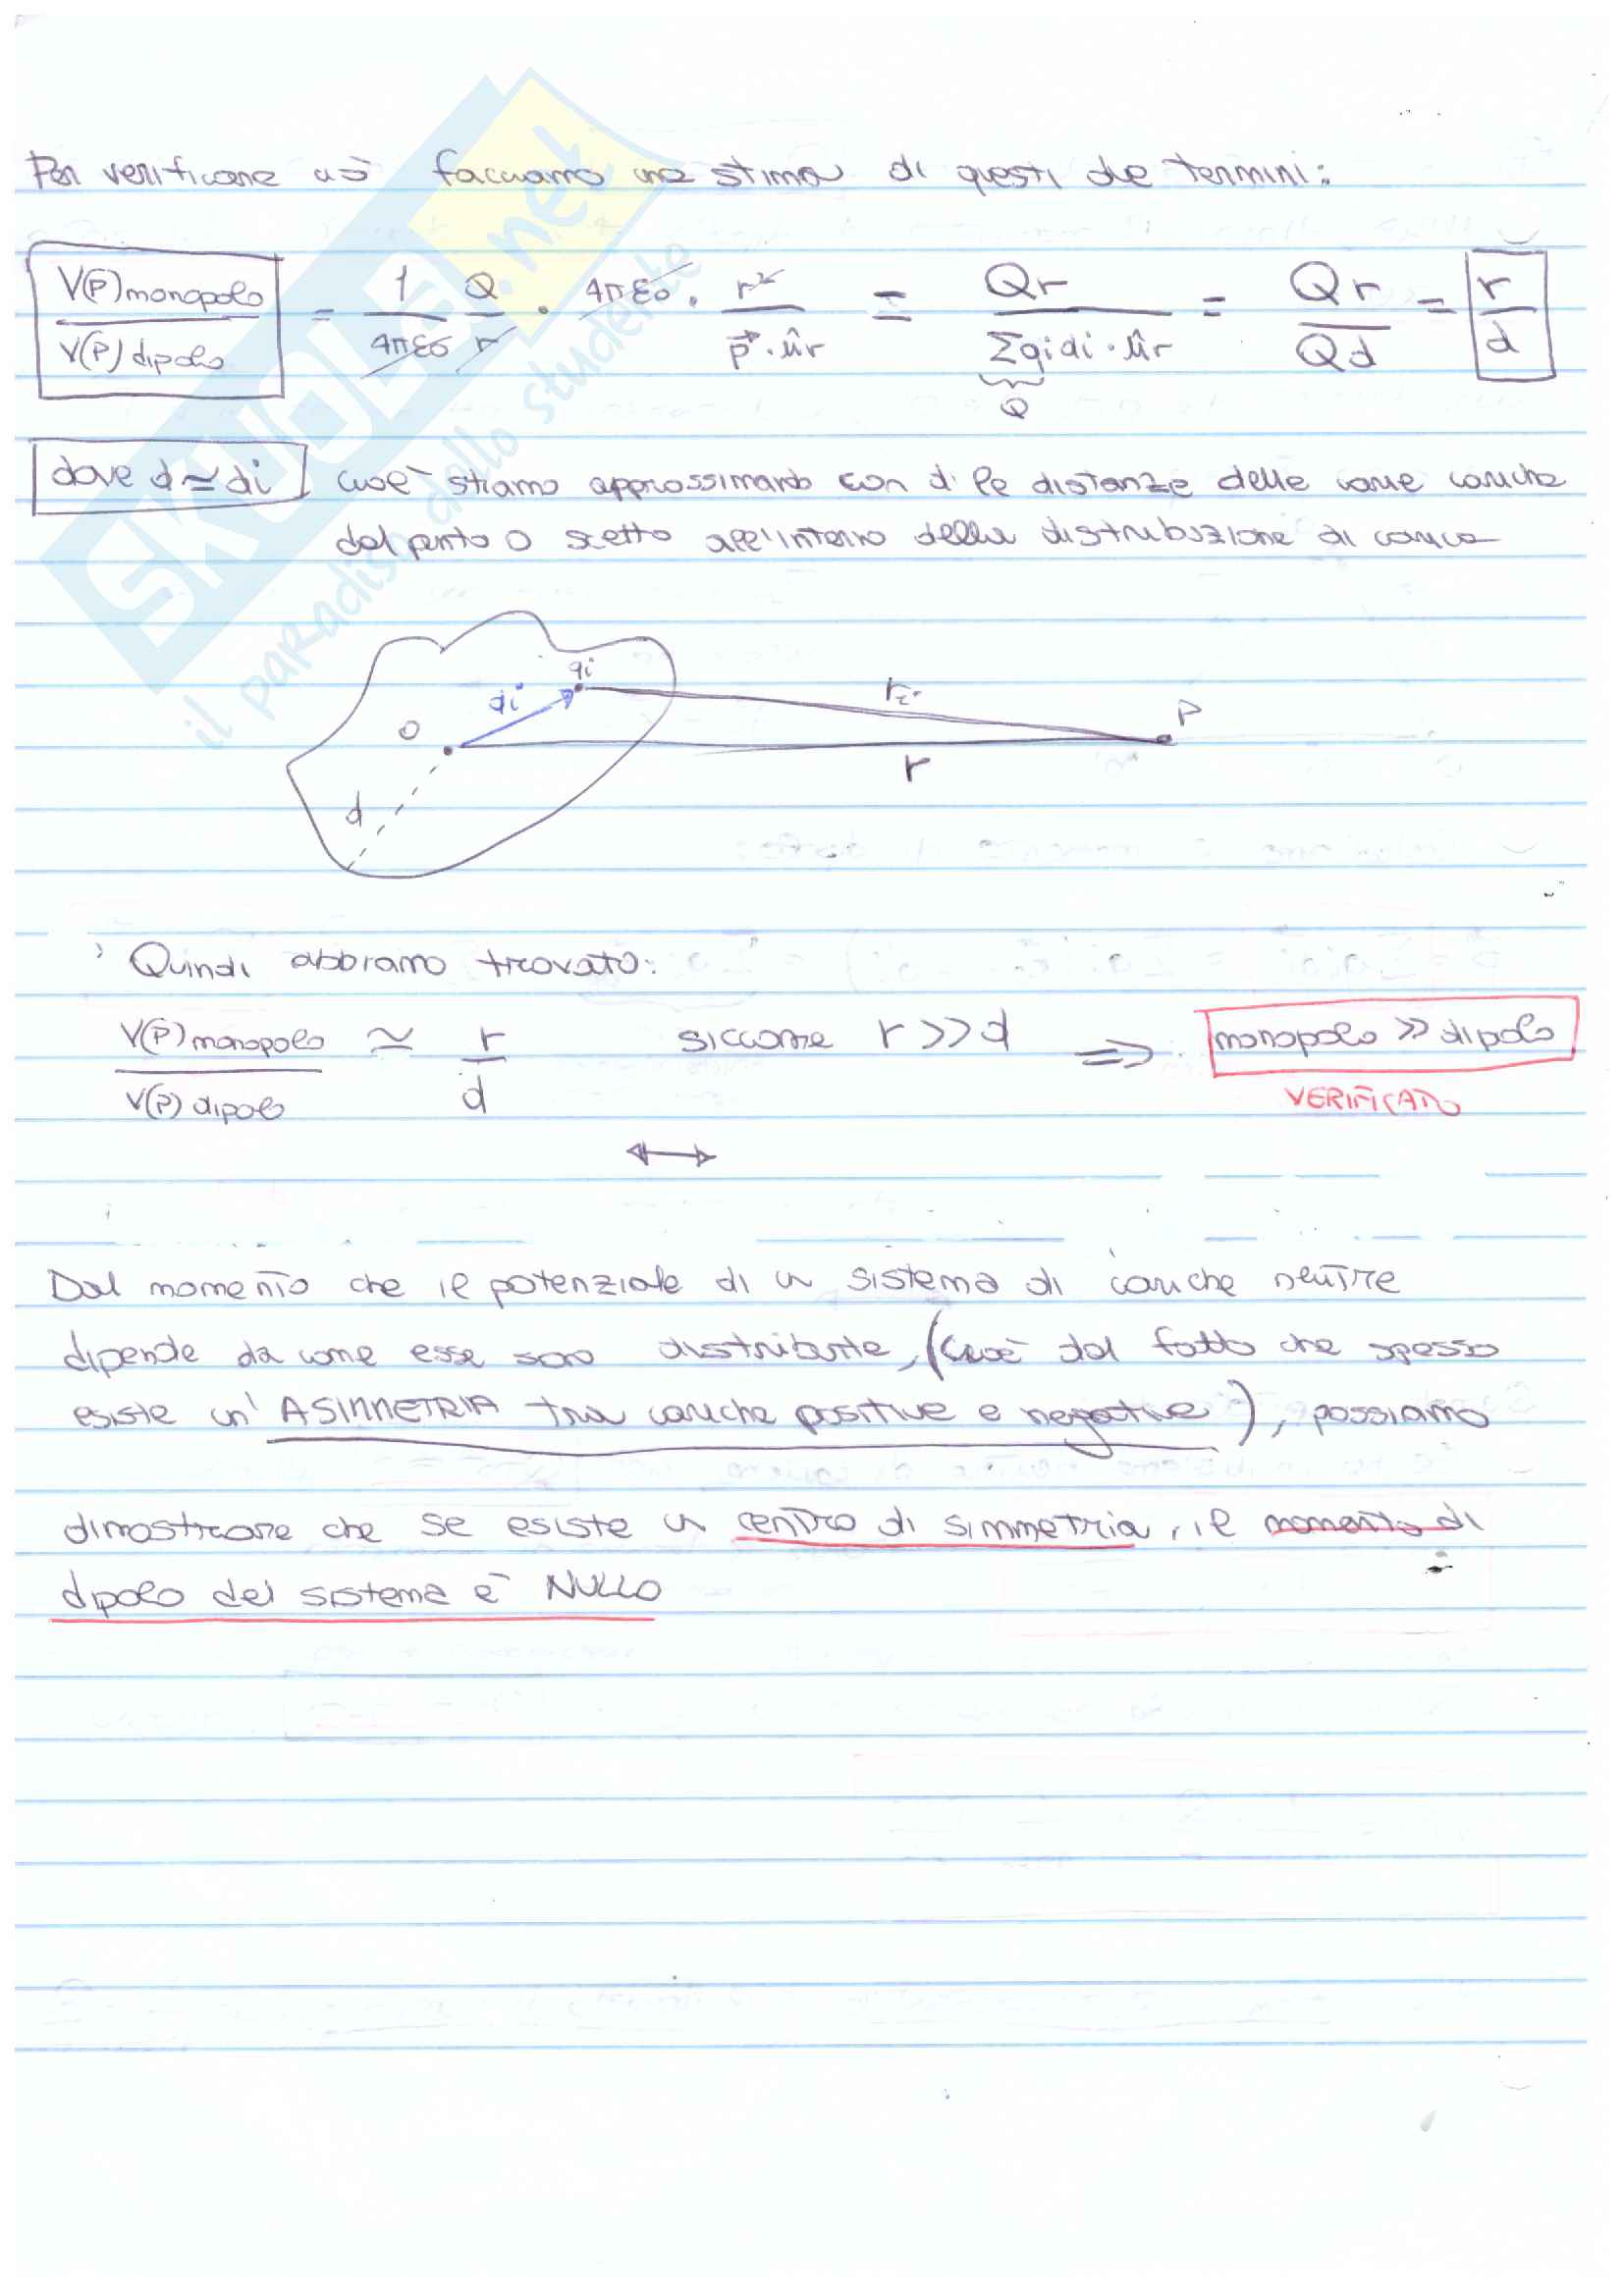 Per verificare ciò facciamo una stima di questi due termini:
V(P)monopolo / V(P)dipolo = 1/4πε0 Q/r · 4πε0 · r²/p⃗·ûr = Qr/Σqidi·ûr = Qr/Qd = r/d
Q
dove d ≃ di cioè stiamo approssimando con d le distanze delle varie cariche
dal punto O scelto all'interno della distribuzione di carica
qi
di
ri
P
O
r
d
Quindi abbiamo trovato:
V(P)monopolo / V(P)dipolo ≃ r/d siccome r >> d => monopolo >> dipolo
VERIFICATO
Dal momento che il potenziale di un sistema di cariche neutre
dipende da come esse sono distribuite, (cioè dal fatto che spesso
esiste un' ASIMMETRIA tra cariche positive e negative), possiamo
dimostrare che se esiste un centro di simmetria, il momento di
dipolo del sistema è NULLO
SKUOLA.net
il paradiso dello studente